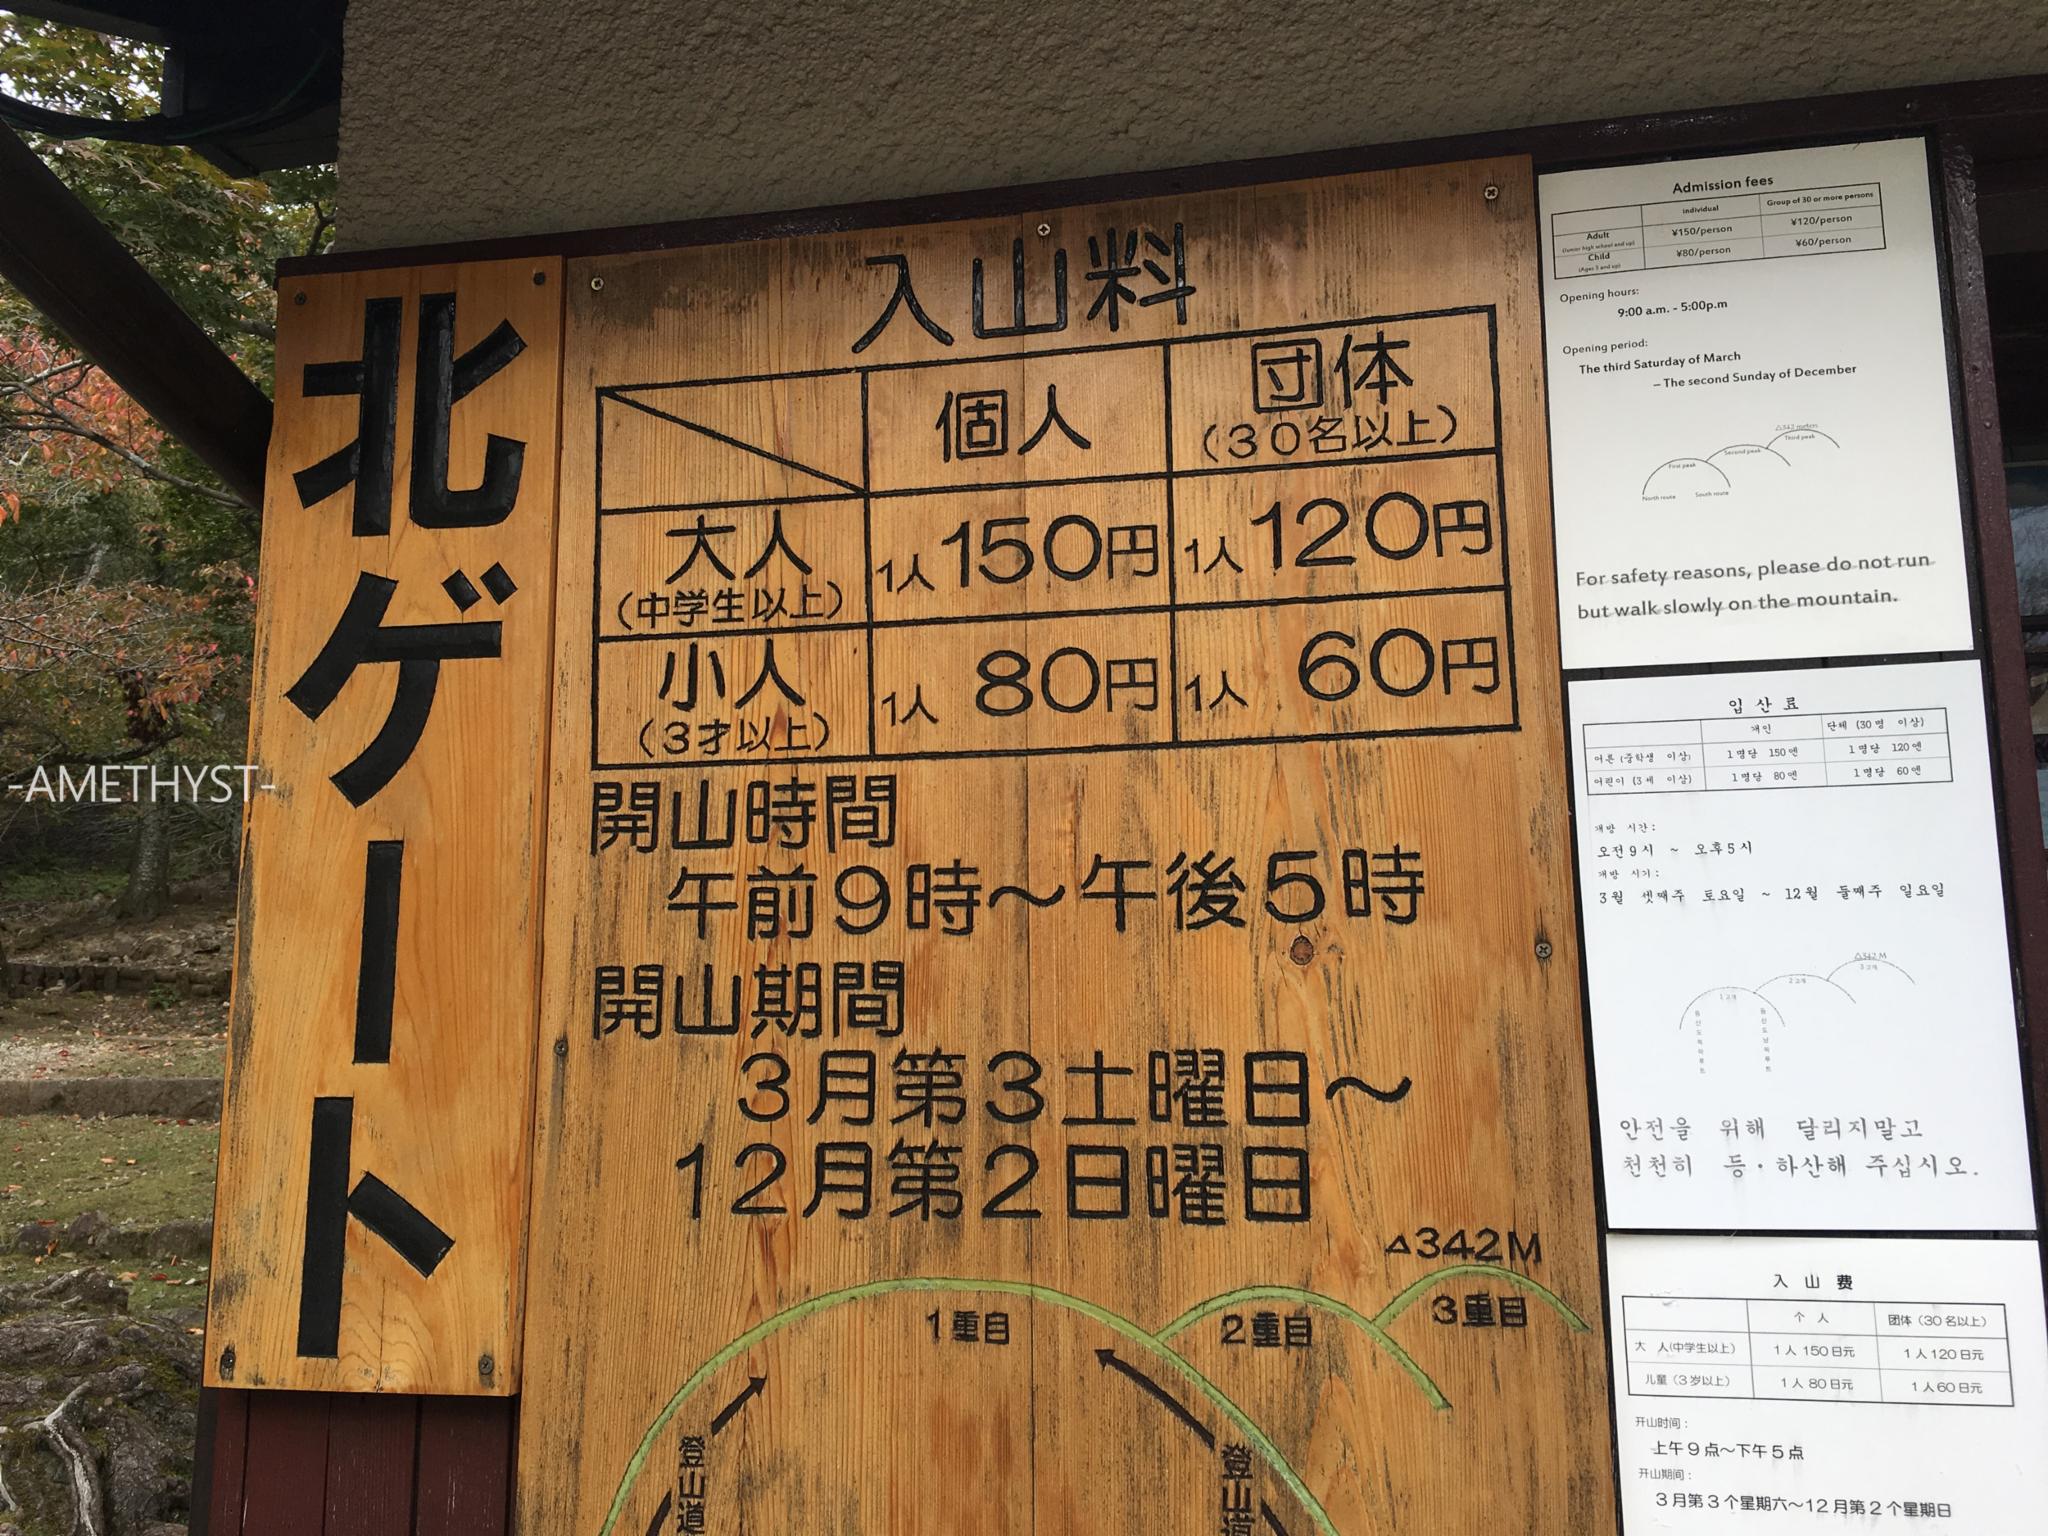 北ゲート
入山料
個人 団体
(30名以上)
大人 1人150円 1人120円
(中学生以上)
小人 1人 80円 1人 60円
(3才以上)
開山時間
午前9時～午後5時
開山期間
3月第3土曜日～
12月第2日曜日
△342M
1重目 2重目 3重目
登山道
登山道
Admission fees
individual Group of 30 or more persons
Adult ¥150/person ¥120/person
(Junior high school and up)
Child ¥80/person ¥60/person
(Ages 3 and up)
Opening hours:
9:00 a.m. - 5:00p.m
Opening period:
The third Saturday of March
– The second Sunday of December
△342 meters
First peak Second peak Third peak
North route South route
For safety reasons, please do not run
but walk slowly on the mountain.
입 산 료
개인 단체 (30명 이상)
어른 (중학생 이상) 1명당 150엔 1명당 120엔
어린이 (3세 이상) 1명당 80엔 1명당 60엔
개방 시간:
오전9시 ~ 오후5시
개방 시기:
3월 셋째주 토요일 ~ 12월 둘째주 일요일
△342M
1고개 2고개 3고개
안전을 위해 달리지말고
천천히 등·하산해 주십시오.
入 山 费
个 人 团体（30名以上）
大 人(中学生以上) 1人150日元 1人120日元
儿童（3岁以上） 1人80日元 1人60日元
开山时间：
上午9点～下午5点
开山期间：
3月第3个星期六～12月第2个星期日
-AMETHYST-